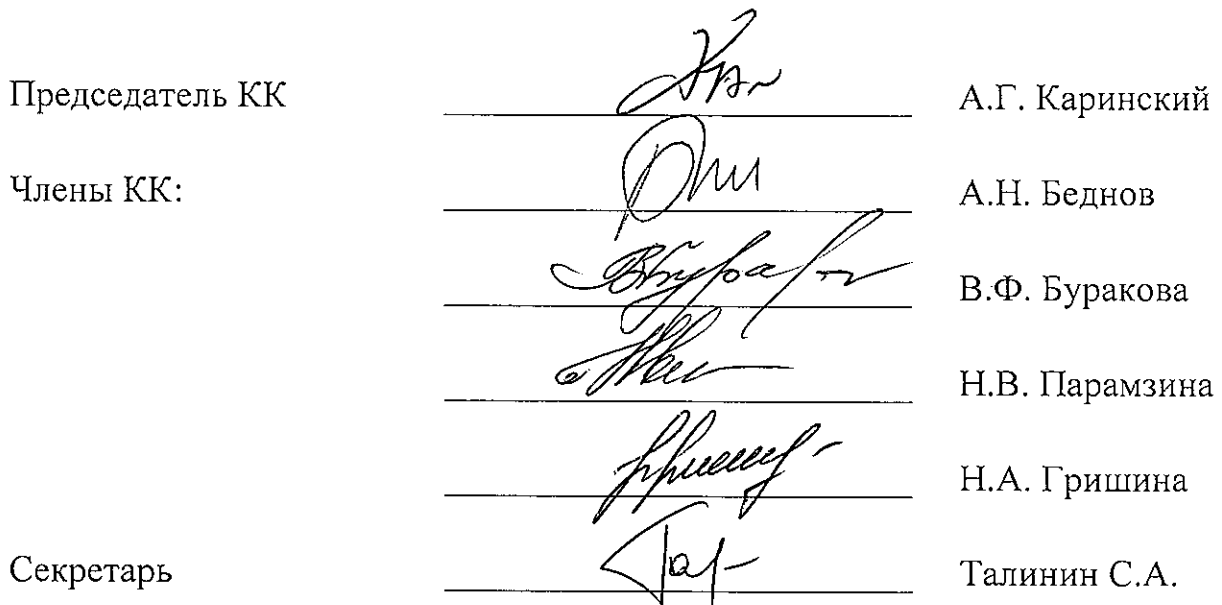 Председатель КК А.Г. Каринский
Члены КК: А.Н. Беднов
В.Ф. Буракова
Н.В. Парамзина
Н.А. Гришина
Секретарь Талинин С.А.